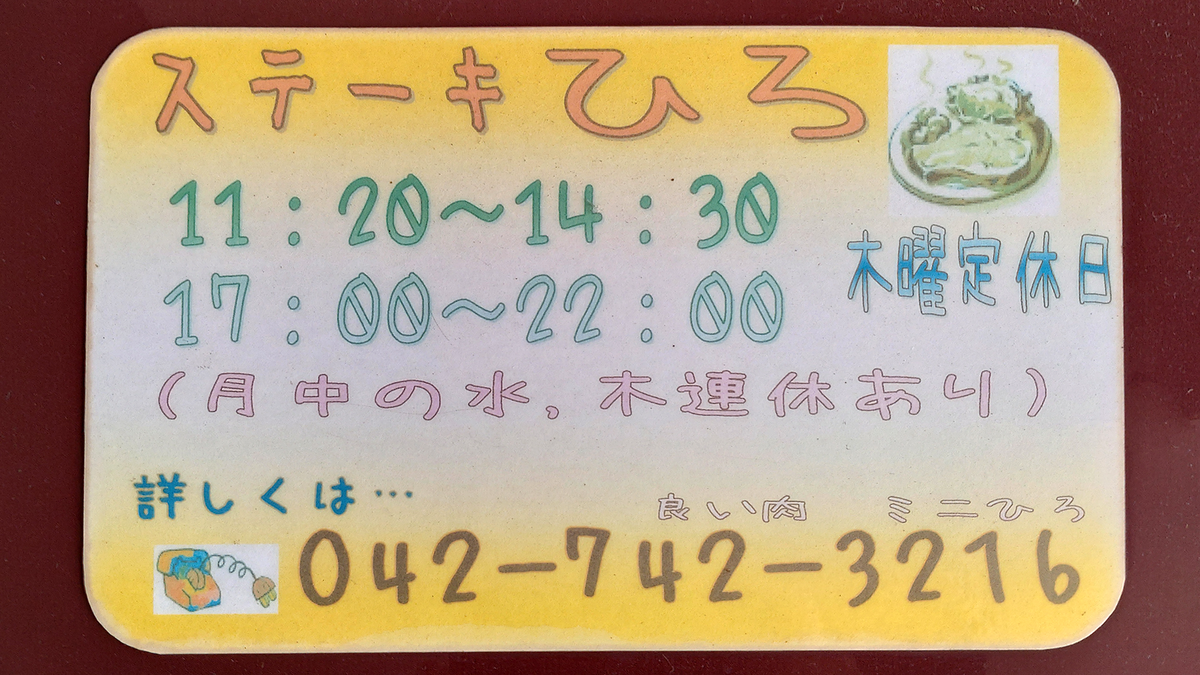 ステーキひろ
11：20～14：30
木曜定休日
17：00～22：00
（月中の水，木連休あり）
詳しくは…
良い肉　ミニひろ
042-742-3216